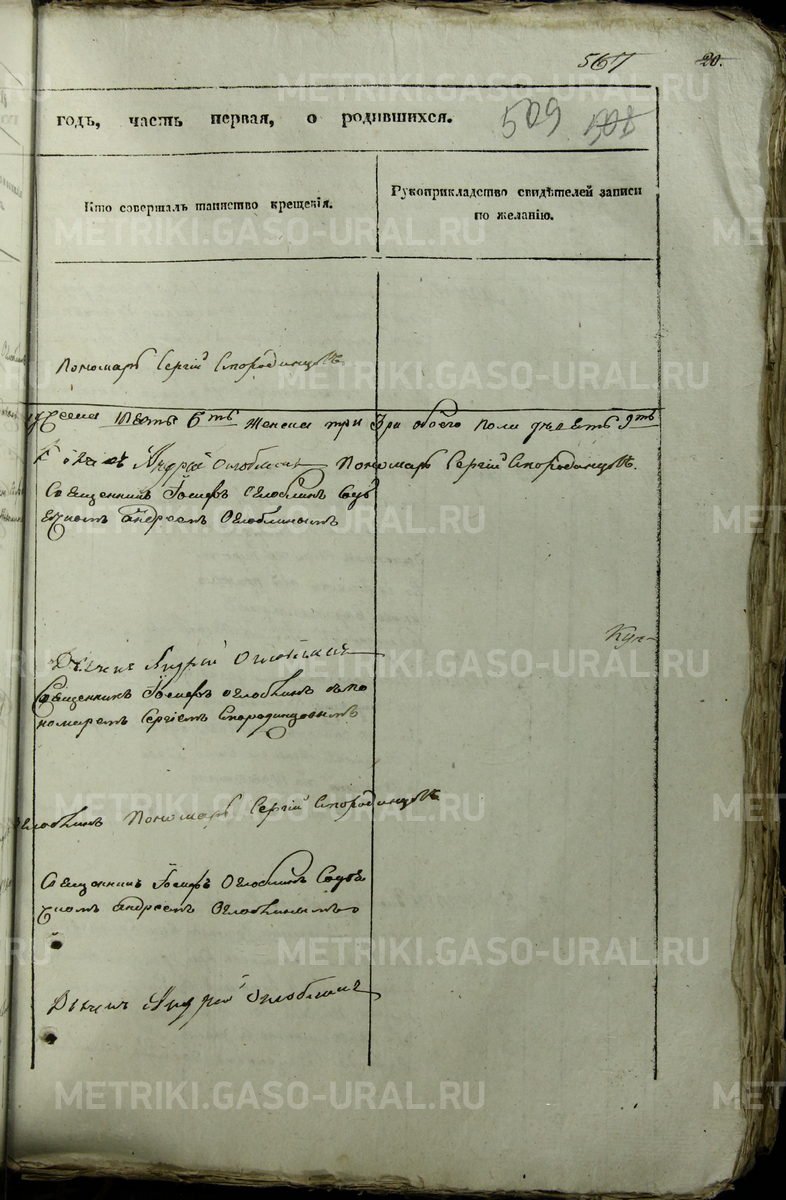 567 20.
годъ, часть первая, о родившихся.
509 508
Кто совершалъ таинство крещенія.
Рукоприкладство свидѣтелей записи
по желанію.
Пономарь Сергій Смородинцовъ
Женска три 3 ри обоего пола деветь 9ть
Андрей Оглоблинъ Пономарь Сергій Смородинцовъ.
Священникъ Іосифъ Оглоблинъ Съдь
ечкомъ Андреемъ Оглоблинымъ
Кун
Дьячекъ Андрей Оглоблинъ
Священникъ Іосифъ Оглоблинъ съ по
номаремъ Сергіемъ Смородинцовымъ
Оглоблинъ Пономарь Сергій Смородинцовъ
Священникъ Іосифъ Оглоблинъ Съдья
чкомъ Андреемъ Оглоблинымъ
Дьячекъ Андрей Оглоблинъ
METRIKI.GASO-URAL.RU